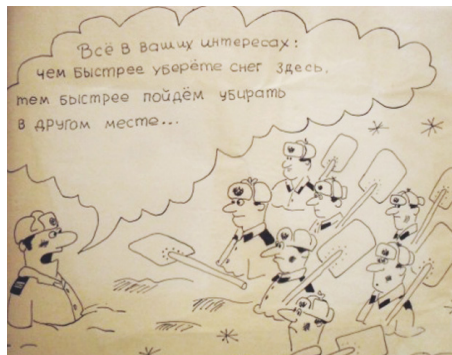 Всё в ваших интересах:
чем быстрее уберёте снег здесь,
тем быстрее пойдём убирать
в другом месте...